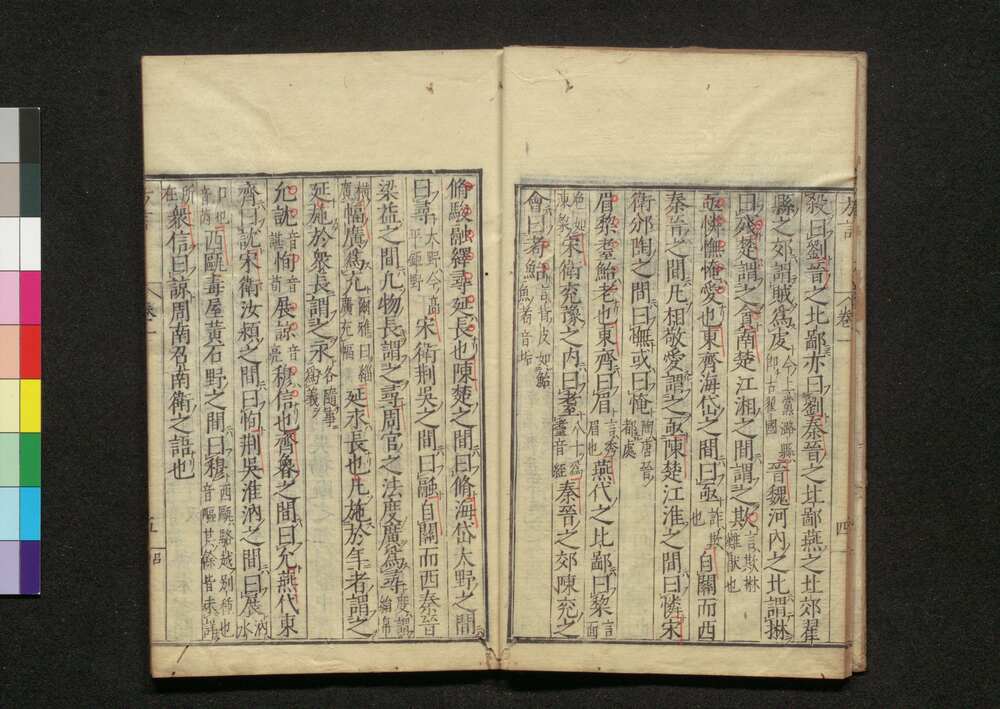 殺曰劉晉之北鄙亦曰劉秦晉之北鄙燕之北郊翟
縣之郊謂賊爲虔今上黨潞縣即古翟國晉魏河內之北謂惏
曰殘楚謂之貪南楚江湘之間謂之欺言欺惏難猒也
亟憐憮㤿愛也東齊海岱之間曰亟詐欺也自關而西
秦晉之間凡相敬愛謂之亟陳楚江淮之間曰憐宋
衛邠陶之間曰憮或曰㤿陶唐晉都處
眉黎耋鮐老也東齊曰眉言秀眉也燕代之北鄙曰黎言面
色如凍棃宋衛兗豫之內曰耋八十爲耋音經秦晉之郊陳兗之
會曰耇鮐言背皮如鮐魚耇音垢
脩駿融繹尋延長也陳楚之間曰脩海岱大野之間
曰尋大野今高平鉅野宋衛荊吳之間曰融自關而西秦晉
梁益之間凡物長謂之尋周官之法度廣爲尋度謂絹帛
橫廣幅廣爲充爾雅曰緇廣充幅延永長也凡施於年者謂之
延施於衆長謂之永各隨事爲義
允訦音諶恂音荀展諒音亮穆信也齊魯之間曰允燕代東
齊曰訦宋衛汝潁之間曰恂荊吳淮汭之間曰展汭水
口也音芮西甌毒屋黃石野之間曰穆西甌駱越別種也音嘔其餘皆未詳
所在衆信曰諒周南召南衛之語也
方言
卷一
四
五